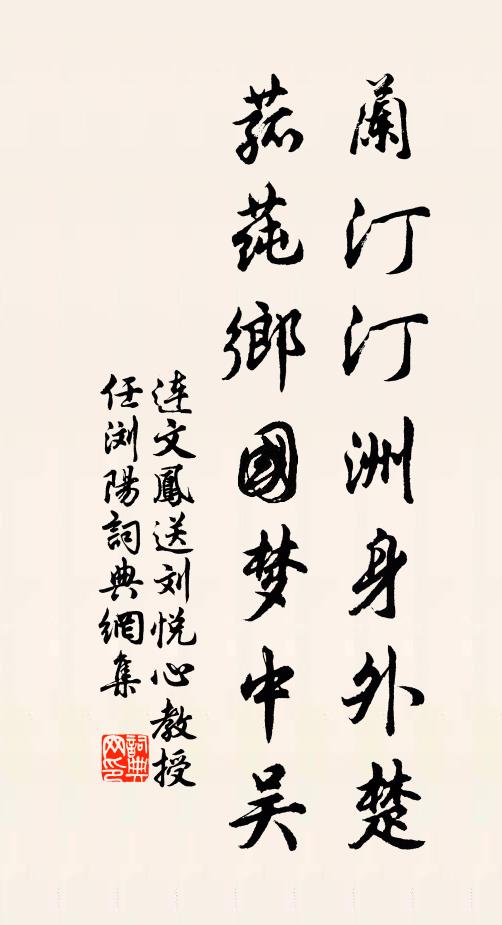 蘭汀汀洲身外楚
菰莼鄉國梦中吴
连文鳳送刘悦心教授
任浏陽詞典網集
詞典网印